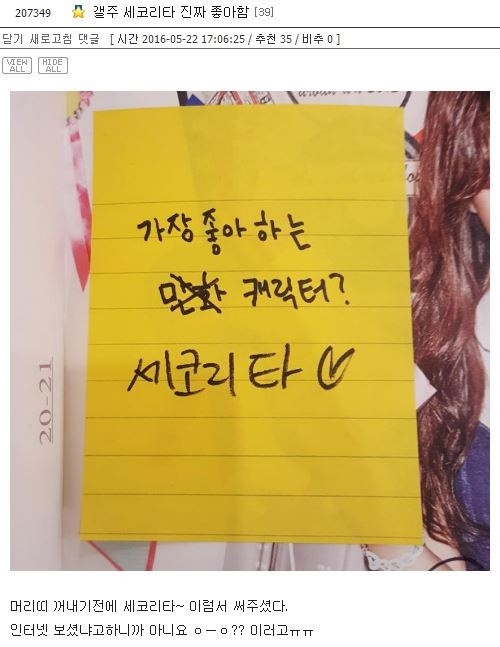 207349 갤주 세코리타 진짜 좋아함 [39]
닫기 새로고침 댓글 [ 시간 2016-05-22 17:06:25 / 추천 35 / 비추 0 ]
VIEW ALL HIDE ALL
가장 좋아하는
만화 캐릭터?
세코리타♡
20-21
머리띠 꺼내기전에 세코리타~ 이럼서 써주셨다.
인터넷 보셨냐고하니까 아니요 ㅇㅡㅇ?? 이러고ㅠㅠ